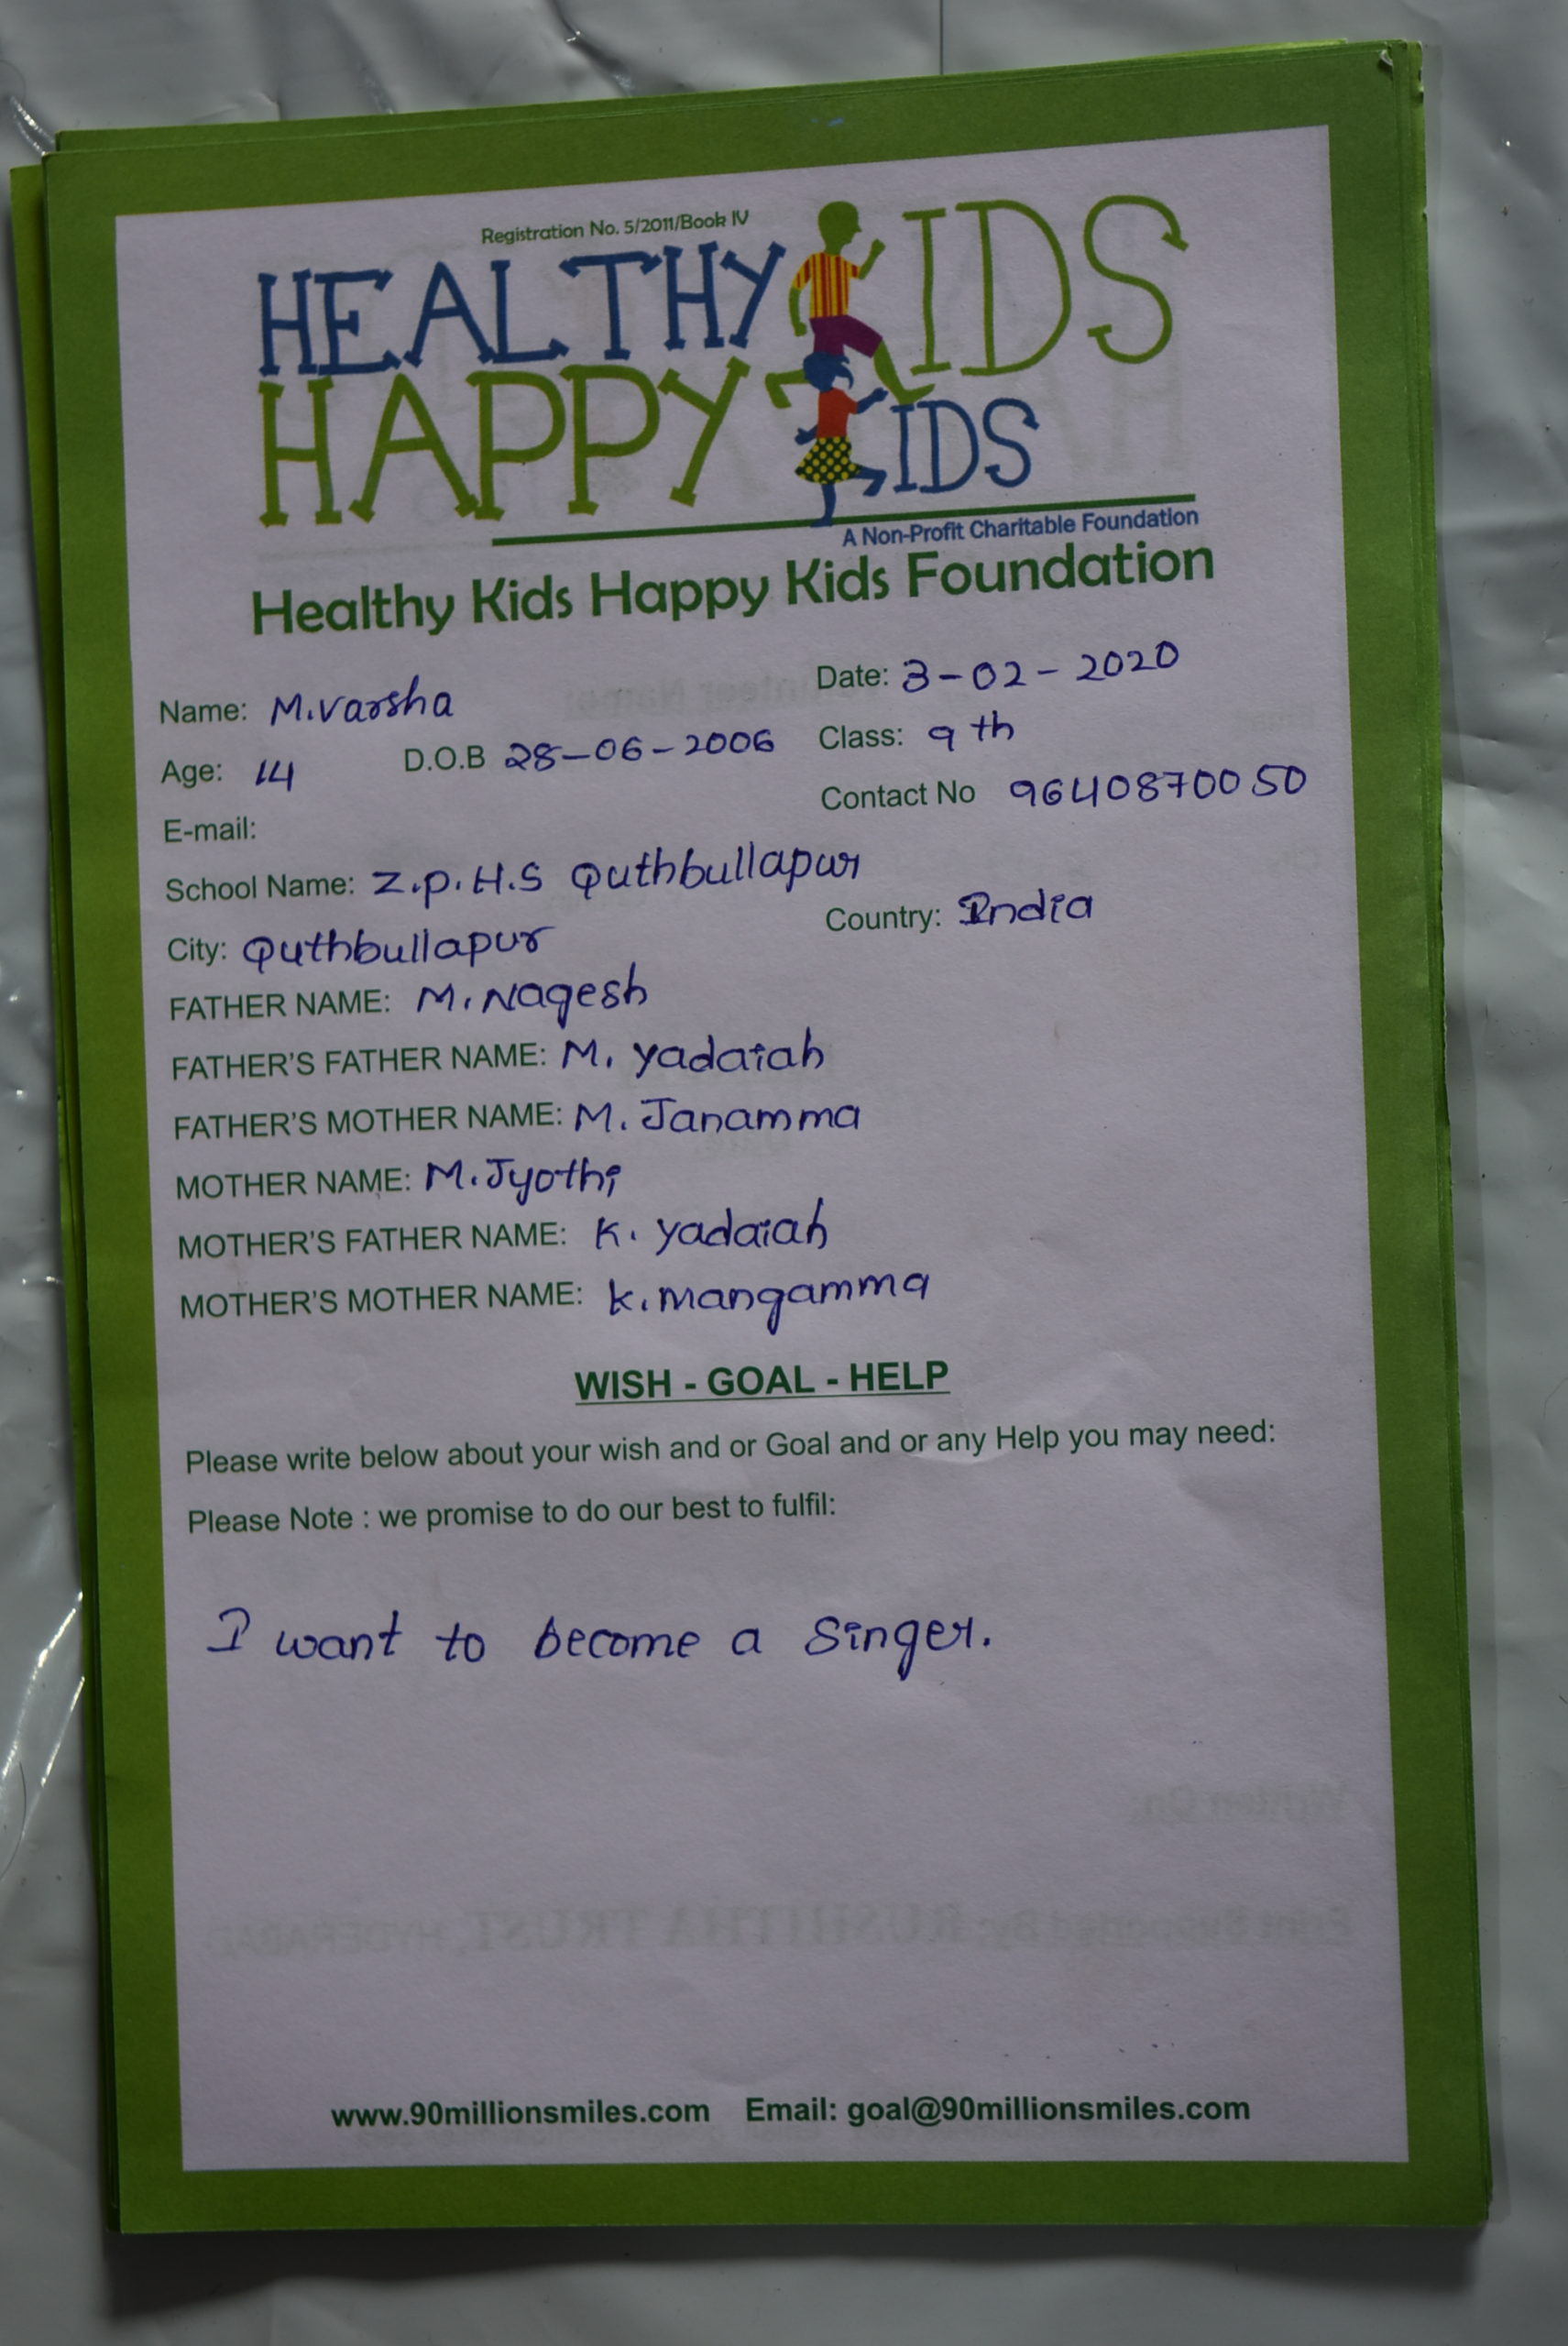 Registration No. 5/2011/Book IV
HEALTHY KIDS
HAPPY KIDS
A Non-Profit Charitable Foundation
Healthy Kids Happy Kids Foundation
Name: M.Varsha Date: 3-02-2020
Age: 14 D.O.B 28-06-2006 Class: 9th
E-mail: Contact No 9640870050
School Name: Z.p.H.S Quthbullapur
City: Quthbullapur Country: India
FATHER NAME: M.Nagesh
FATHER'S FATHER NAME: M. yadaiah
FATHER'S MOTHER NAME: M. Janamma
MOTHER NAME: M.Jyothi
MOTHER'S FATHER NAME: K. yadaiah
MOTHER'S MOTHER NAME: k.mangamma
WISH - GOAL - HELP
Please write below about your wish and or Goal and or any Help you may need:
Please Note : we promise to do our best to fulfil:
I want to become a singer.
Written On:
Print Supported By: RUSHITHA TRUST, HYDERABAD
www.90millionsmiles.com Email: goal@90millionsmiles.com